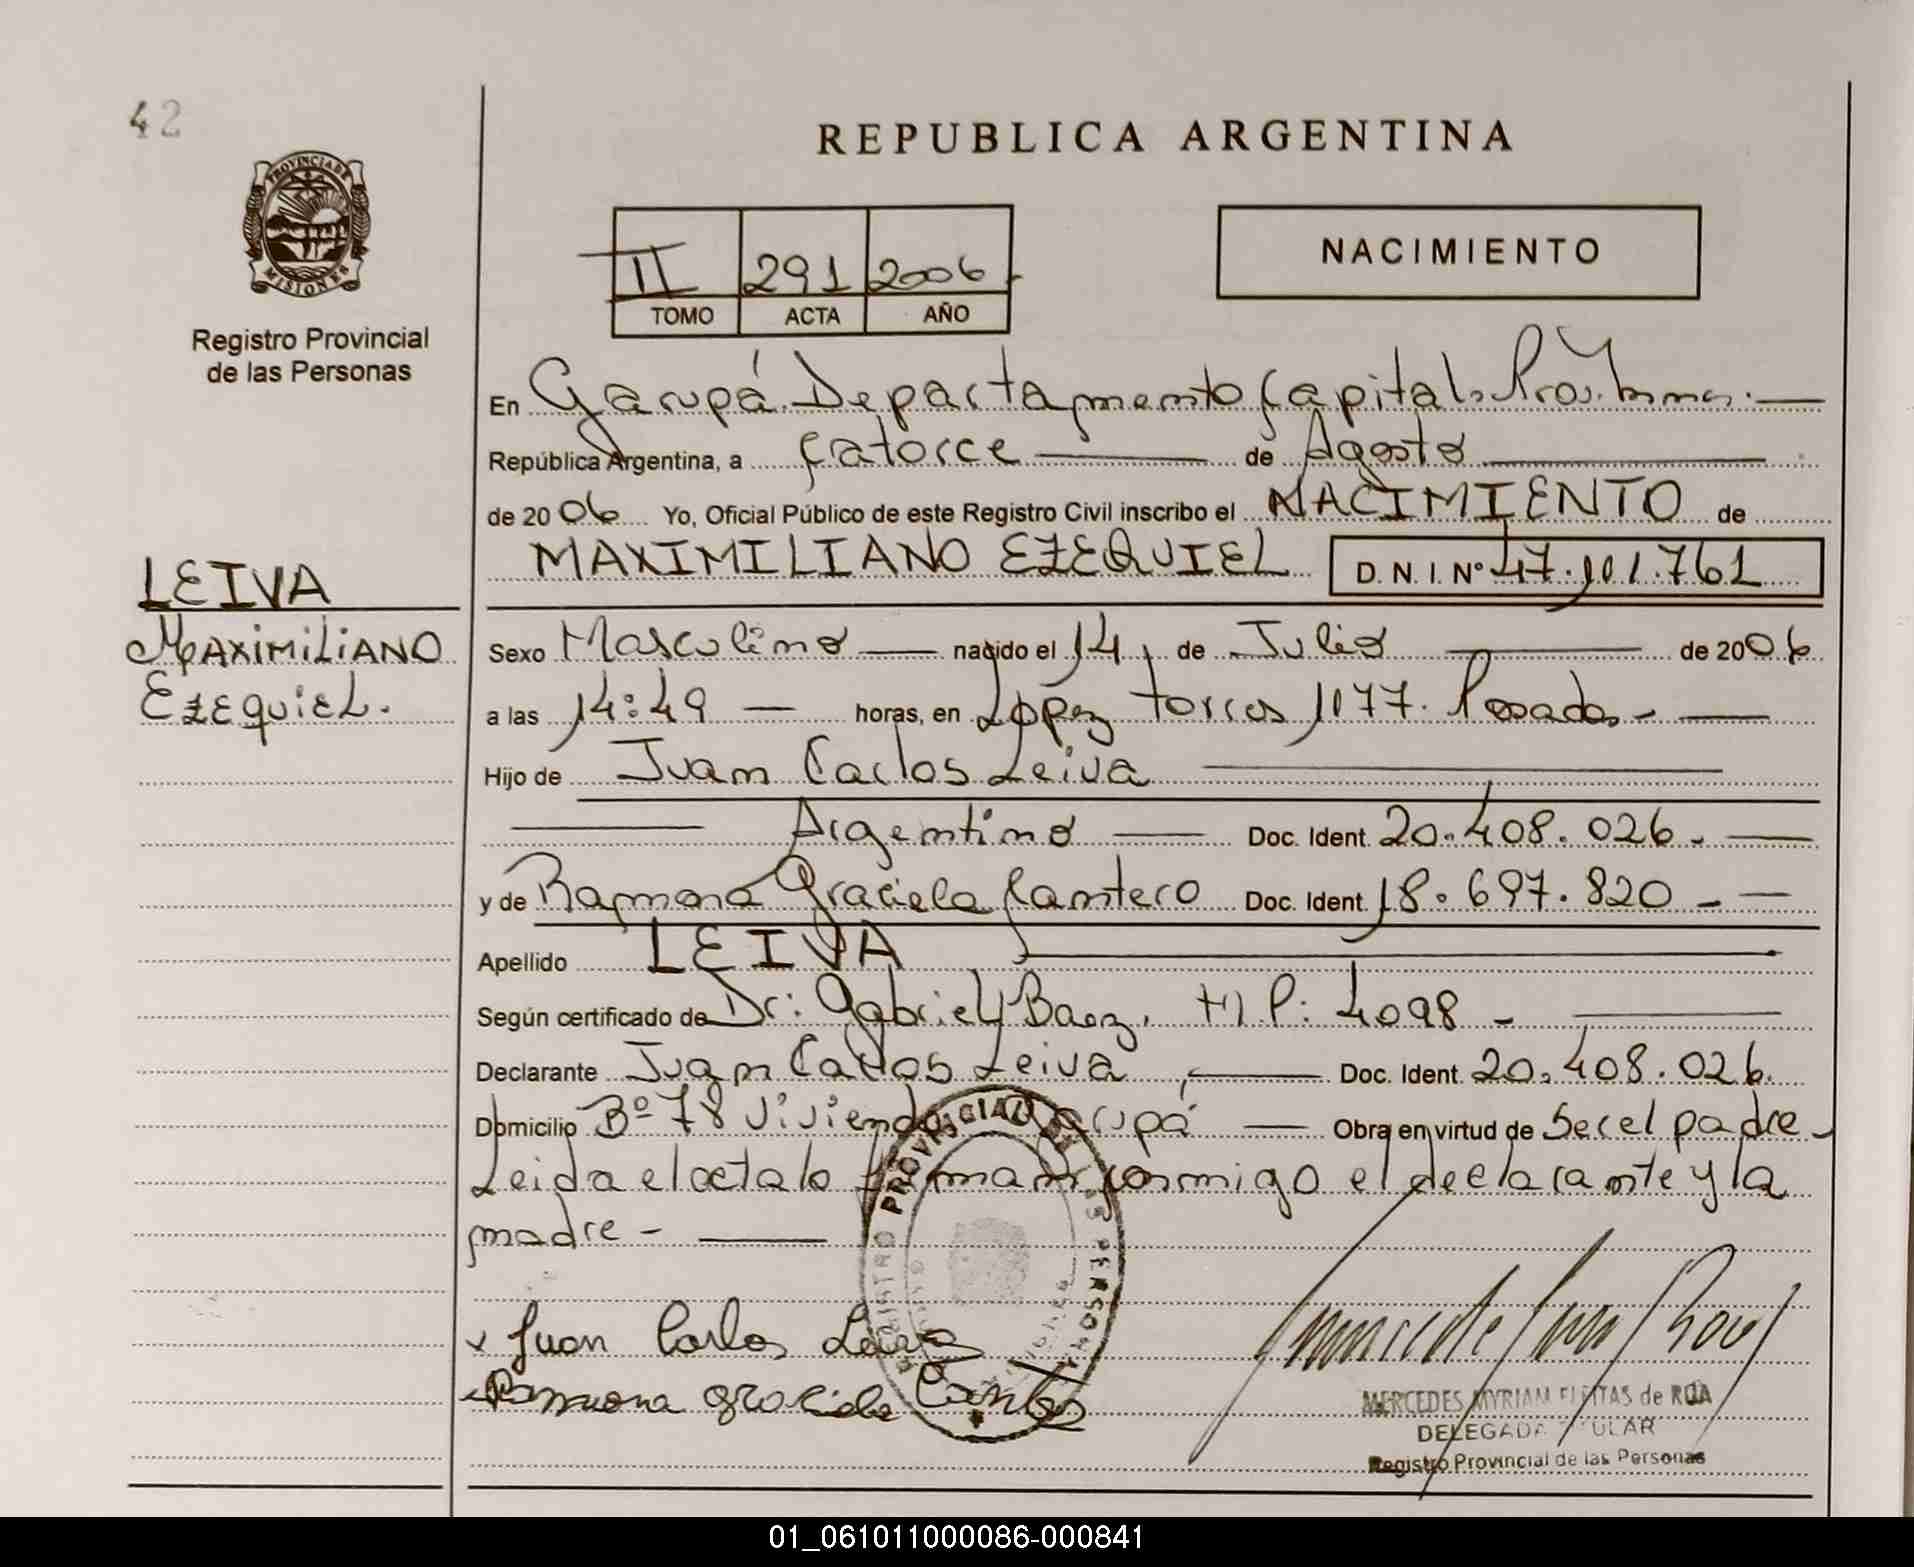 42
REPUBLICA ARGENTINA
PROVINCIA DE
MISIONES
Registro Provincial
de las Personas
II 291 2006
TOMO ACTA AÑO
NACIMIENTO
En Garupá. Departamento Capital. Prov. Mnes.
República Argentina, a catorce de Agosto
de 2006 Yo, Oficial Público de este Registro Civil inscribo el NACIMIENTO de
MAXIMILIANO EZEQUIEL D. N. I. Nº 47.101.761
LEIVA
MAXIMILIANO
EZEQUIEL.
Sexo Masculino nacido el 14 de Julio de 2006
a las 14:49 horas, en López Torres 1177. Posadas-
Hijo de Juan Carlos Leiva
Argentino Doc. Ident. 20.408.026.
y de Ramona Graciela Cantero Doc. Ident. 18.697.820
Apellido LEIVA
Según certificado de Dr: Gabriel Baez. M P: 4098 -
Declarante Juan Carlos Leiva Doc. Ident. 20.408.026.
Domicilio Bº 78 Viviendas Garupá Obra en virtud de Ser el padre
Leida el acta la firman conmigo el declarante y la
madre -
REGISTRO PROVINCIAL DE LAS PERSONAS
x Juan Carlos Leiva
Ramona graciela Cantero
MERCEDES MYRIAM FLEITAS de ROA
DELEGADA TITULAR
Registro Provincial de las Personas
01_061011000086-000841